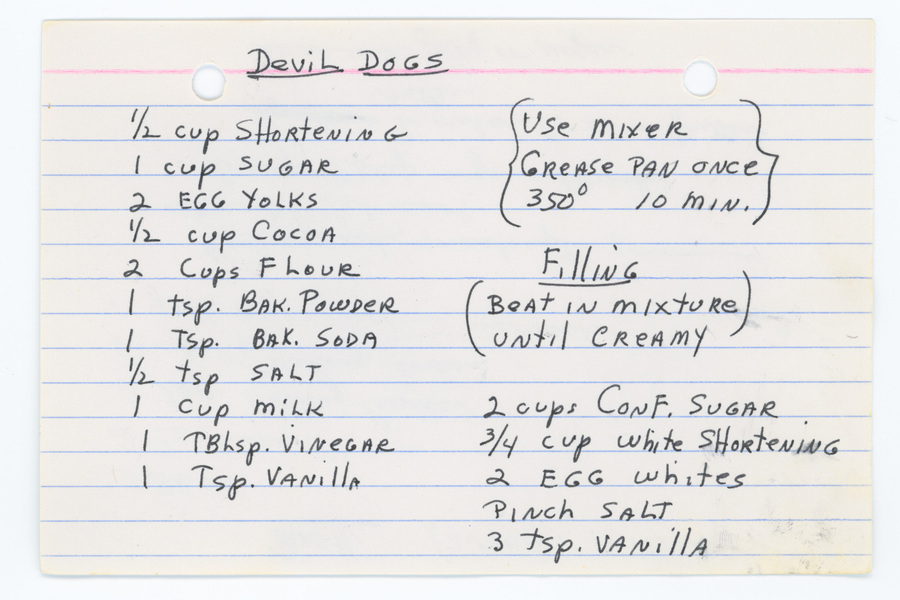 Devil Dogs
1/2 cup SHORTENING
1 cup SUGAR
2 EGG YOLKS
1/2 cup COCOA
2 Cups FLOUR
1 tsp. BAK. POWDER
1 Tsp. BAK. SODA
1/2 tsp SALT
1 cup MILK
1 TBLsp. VINEGAR
1 Tsp. VANILLA
USE MIXER
GREASE PAN ONCE
350° 10 MIN.
Filling
BEAT IN MIXTURE
UNTIL CREAMY
2 cups CONF. SUGAR
3/4 cup white SHORTENING
2 EGG whites
PINCH SALT
3 tsp. VANILLA